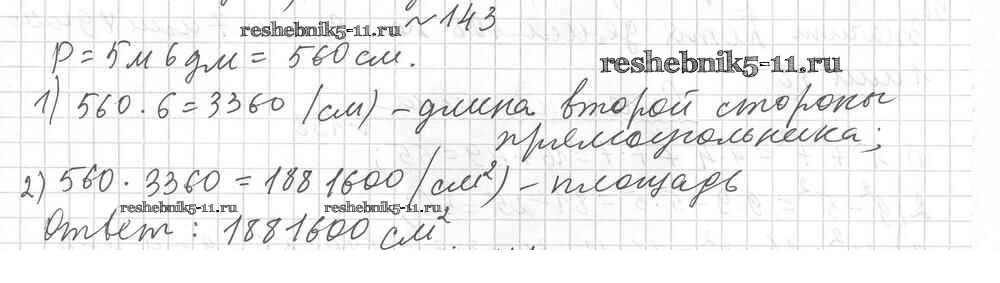 ~ 143
reshebnik5-11.ru
P = 5м 6дм = 560 см.
reshebnik5-11.ru
1) 560 · 6 = 3360 (см) - длина второй стороны
прямоугольника;
2) 560 · 3360 = 1881600 (см²) - площадь
reshebnik5-11.ru reshebnik5-11.ru
Ответ: 1881600 см²